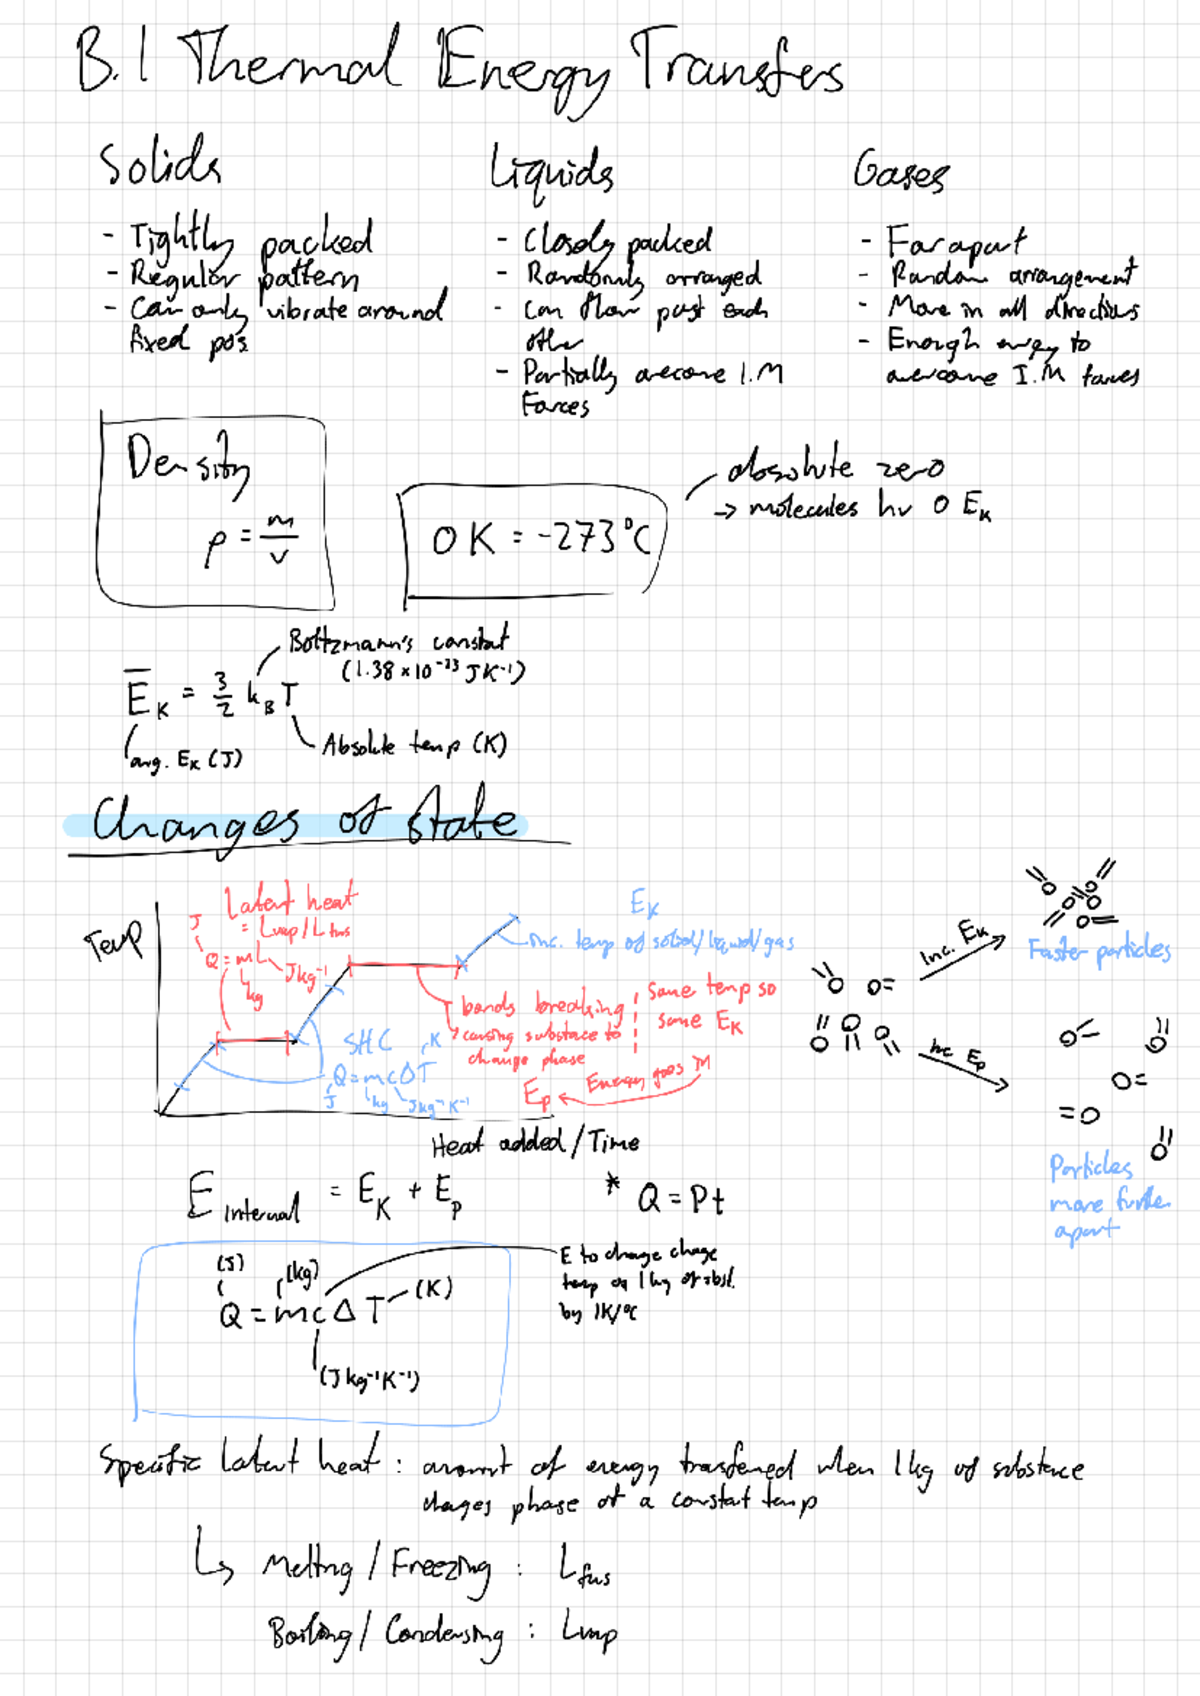 B.1 Thermal Energy Transfers
Solids
- Tightly packed
- Regular pattern
- Can only vibrate around
fixed pos
Liquids
- Closely packed
- Randomly arranged
- Can flow past each
other
- Partially overcome I.M
Forces
Gases
- Far apart
- Random arrangement
- Move in all directions
- Enough energy to
overcome I.M forces
Density
ρ = m/v
0 K = -273°C
absolute zero
→ molecules hv 0 EK
Boltzmann's constant
(1.38 × 10⁻²³ JK⁻¹)
ĒK = 3/2 kB T
avg. EK (J)
Absolute temp (K)
Changes of state
Temp
Latent heat
= Lvap/Lfus
J
Q = mL
Jkg⁻¹
kg
EK
inc. temp of solid/liquid/gas
bonds breaking
causing substance to
change phase
same temp so
same EK
Energy goes
Ep
SHC
K
Q = mcΔT
J
kg
Jkg⁻¹K⁻¹
Heat added/Time
Inc. EK
Faster particles
Inc Ep
Particles
move further
apart
E internal = EK + Ep
* Q = Pt
(J)
(kg)
Q = mcΔT
(K)
(Jkg⁻¹K⁻¹)
E to change change
temp of 1kg of sbst.
by 1K/°C
Specific latent heat : amount of energy transferred when 1kg of substance
changes phase at a constant temp
↳ Melting / Freezing : Lfus
Boiling / Condensing : Lvap